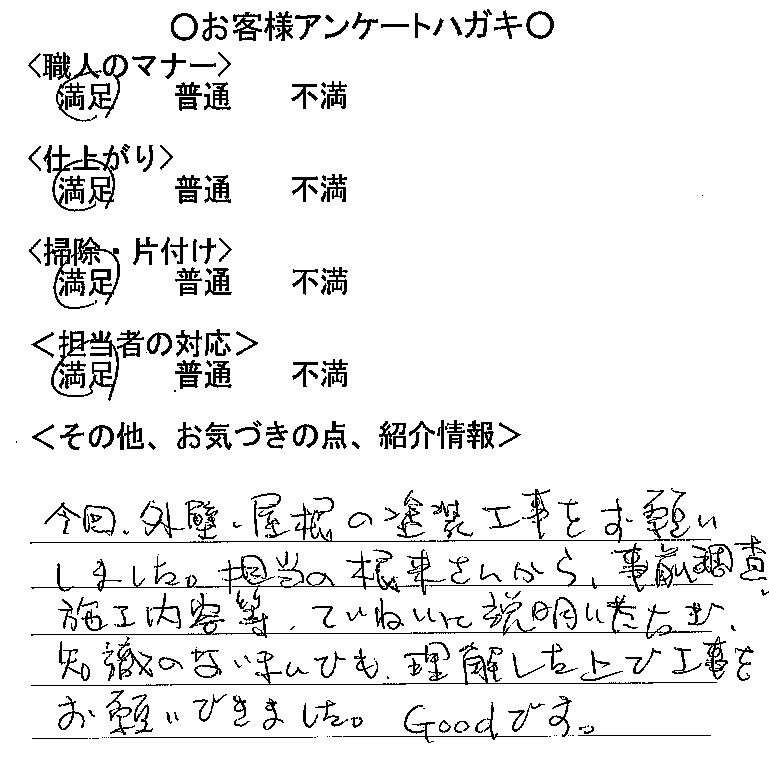 ○お客様アンケートハガキ○
<職人のマナー>
満足 普通 不満
<仕上がり>
満足 普通 不満
<掃除・片付け>
満足 普通 不満
<担当者の対応>
満足 普通 不満
<その他、お気づきの点、紹介情報>
今回、外壁・屋根の塗装工事をお願い
しました。担当の根来さんから、事前調査、
施工内容等、ていねいに説明いただき、
知識のない素人でも、理解した上で工事を
お願いできました。Goodです。